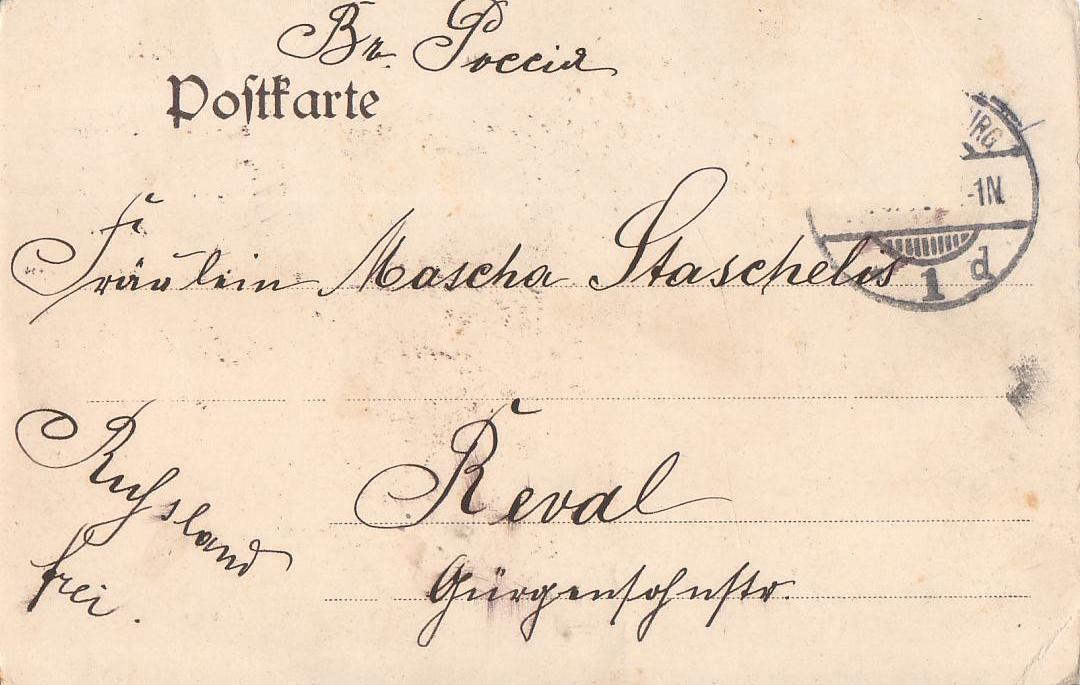 Въ Россiя
Postkarte
URG
-1N.
1 d
Fräulein Mascha Staschelis
Reval
Rußland
frei.
Gürgensohnstr.